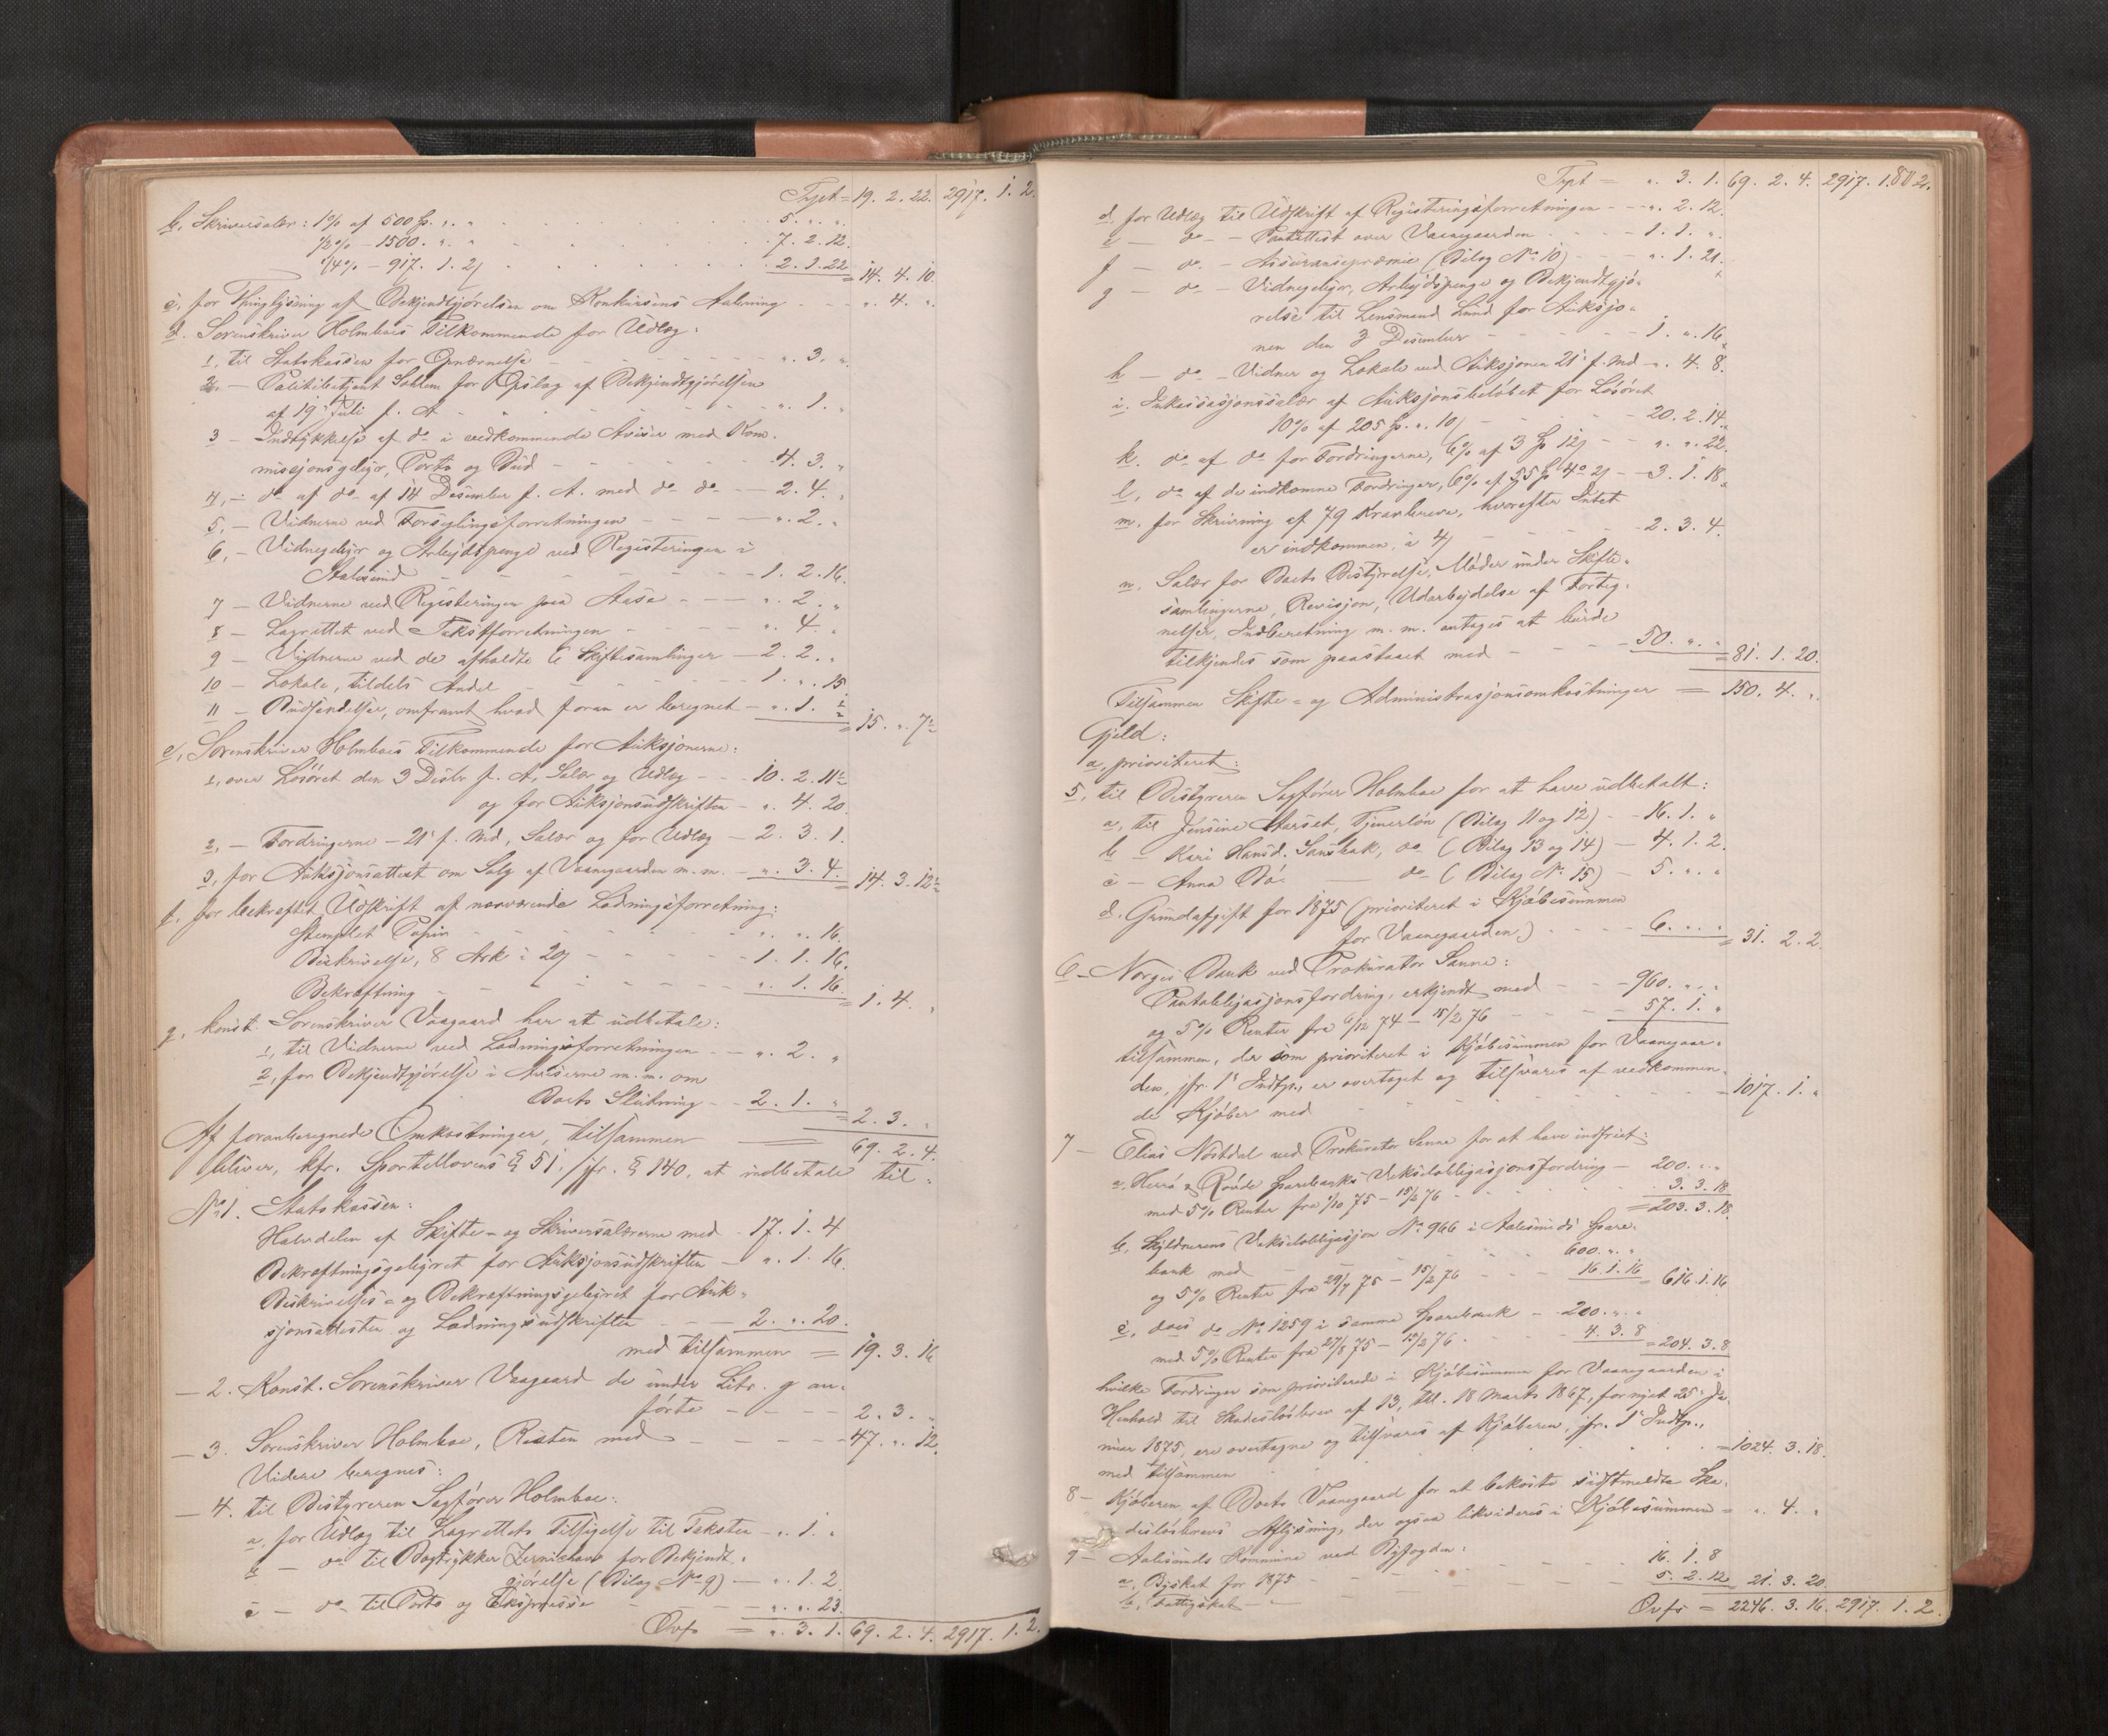 Trpt = 19. 2. 22. 2917. 1. 2.
b, Skriversalær: 1% af 500 Sp. „. „ 5. „. „
½% – 1500. „. „ 7. 2. 12.
¼% – 917. 1. 2 2. 1. 22 = 14. 4. 10.
c, for Thinglysning af Bekjendtgjørelsen om Konkursens Aabning „. 4. „.
d. Sorenskriver Holmboes Tilkommende for Udlæg:
1, til Statskassen for Opnævnelse „. 3. „.
2, – Politibetjent Sahlen for Opslag af Bekjendtgjørelsen
af 19 Juli f. A. „. 1. „
3 – Indrykkelse af do i vedkommende Aviser med Kom-
missjonsgebyr, Porto og Bud 4. 3. „
4, – do af do af 14 Desember f. A. med do do 2. 4. „
5, – Vidnerne ved Forseglingsforretningen „. 2. „
6, – Vidnegebyr og Arbejdspenge ved Registeringen i
Aalesund 1. 2. 16.
7 – Vidnerne ved Registeringen paa Aase „. 2. „
8 – Lagrettet ved Takstforretningen „. 4. „
9 – Vidnerne ved de afholdte 6 Skiftesamlinger 2. 2. „
10 – Lokale, tildels Andel 1. „. 15
11 – Budsendelser, omframt hvad foran er beregnet „. 1. ½ = 15. „. 7½
e, Sorenskriver Holmboes Tilkommende for Auksjonerne:
1, over Løsøret den 3 Desbr f. A, Salær og Udlæg 10. 2. 11½
og for Auksjonsudskriften „. 4. 20.
2, – Fordringerne – 21' f. Md, Salær og for Udlæg 2. 3. 1.
3, for Auksjonsattest om Salg af Vaanegaarden m. m. „. 3. 4. = 14. 3. 12½
f, for bekræftet Udskrift af nærværende Lodningsforretning:
stemplet Papir „. „. 16.
Beskrivelse, 8 Ark à 20 1. 1. 16.
Bekræftning „. 1. 16. = 1. 4. „
g, konst. Sorenskriver Vaagaard har at udbetale:
1, til Vidnerne ved Lodningsforretningen „. 2. „
2, for Bekjendtgjørelse i Aviserne m. m. om
Boets Slutning 2. 1. „ = 2. 3. „
Af foranberegnede Omkostninger, tilsammen = 69. 2. 4.
bliver, kfr. Sportellovens § 51, jfr. § 140, at indbetale til
No 1. Statskassen:
Halvdelen af Skifte- og Skriversalærerne med 17. 1. 4
Bekræftningsgebyret for Auksjonsudskriften „. 1. 16.
Beskrivelses- og Bekræftningsgebyret for Auk-
sjonsattesten og Lodningsudskriften 2. „. 20.
med tilsammen = 19. 3. 16
– 2. Konst. Sorenskriver Vaagaard de under Litr. g an-
førte 2. 3. „
– 3. Sorenskriver Holmboe, Resten med 47. „. 12.
Videre beregnes:
– 4. til Bestyreren Sagfører Holmboe:
a, for Udlæg til Lagrettets Tilsigelse til Taksten „. 1. „
b – do til Bogtrykker for Bekjendt-
gjørelse (Bilag No 9) „. 1. 2
c – do til Porto og Ekspresse „. „. 23.
Ovfs = „. 3. 1. 69. 2. 4. 2917. 1. 2.
Trpt = „. 3. 1. 69. 2. 4. 2917. 1. 2.
d, for Udlæg til Udskrift af Registeringsforretningen „. 2. 12.
e – do – Pantattest over Vaanegaarden 1. 1. „
f – do – Assurancepræmie (Bilag No 10) „. 1. 21.
g – do – Vidnegebyr, Arbejdspenge og Bekjendtgjø-
relse til Lensmand Lund for Auksjo-
nen den 3 Desember 1. „. 16
h – do – Vidner og Lokale ved Auksjonen 21' f. Md „. 4. 8.
i. Inkassasjonssalær af Auksjonsbeløbet for Løsøret
10% af 205 Sp. „. 10 20. 2. 14.
k. do af do for Fordringerne, 6% af 3 Sp 12 „. „. 22.
l, do af de indkomne Fordringer, 6% af 55 Sp 4o 2 3. 1. 18.
m. for Skrivning af 79 Kravbreve, hvorefter Intet
er indkommen, à 4 2. 3. 4.
n. Salær for Boets Bestyrelse, Møder under Skifte-
samlingerne, Revisjon, Udarbejdelse af Forteg-
nelser, Indberetning m. m. antages at burde
tilkjendes som paastaaet med 50. „. „ = 81. 1. 20.
Tilsammen Skifte- og Administrasjonsomkostninger = 150. 4. „
Gjeld:
a, prioriteret:
5, til Bestyreren Sagfører Holmboe for at have udbetalt:
a, til Jensine Aarset, Tjenerløn (Bilag 11 og 12) 16. 1. „
b – Kari Hansd. Saursbak, do (Bilag 13 og 14) 4. 1. 2.
c – Anna Bø do (Bilag No 15) 5. „. „
d. Grundafgift for 1875 (prioriteret i Kjøbesummen
for Vaanegaarden) 6. „. „ = 31. 2. 2.
6 – Norges Bank ved Prokurator Sanne:
Pantobligasjonsfordring, erkjendt med 960. „. „
og 5% Renter fra 6/12 74 – 15/2 76 57. 1. „
tilsammen, der som prioriteret i Kjøbesummen for Vaanegaar-
den, jfr. 1' Indtp., er overtaget og tilsvares af vedkommen-
de Kjøber med = 1017. 1. „
7 – Elias Nostdal ved Prokurator Sanne for at have indfriet:
a. Herrø & Røvde Sparebanks Vekselobligasjonsfordring 200. „. „
med 5% Renter fra 1/10 75 – 15/2 76 3. 3. 18 = 203. 3. 18.
b, Skyldnerens Vekselobligasjon No 966 i Aalesunds Spare-
bank med 600. „. „
og 5% Renter fra 29/7 75 – 15/2 76 16. 1. 16 = 616. 1. 16
c, dens do No 1259 i samme Sparebank 200. „. „
med 5% Renter fra 27/8 75 – 15/2 76 4. 3. 8 = 204. 3. 8
hvilke Fordringer som prioriterede i Kjøbesummen for Vaanegaarden i
Henhold til Skadesløsbrev af 13, tbl. 18 Marts 1867, fornyet 25' Ja-
nuar 1875, ere overtagne og tilsvares af Kjøberen, jfr. 1' Indtp.,
med tilsammen = 1024. 3. 18.
8 – Kjøberen af Boets Vaanegaard for at bekoste sidstmeldte Ska-
desløsbrevs Aflysning, der ogsaa likvideres i Kjøbesummen = „. 4. „
9 – Aalesunds Kommune ved Byfogden:
a, Byskat for 1875 16. 1. 8
b, Fattigskat – 5. 2. 12 21. 3. 20.
Ovfs = 2246. 3. 16. 2917. 1. 2.